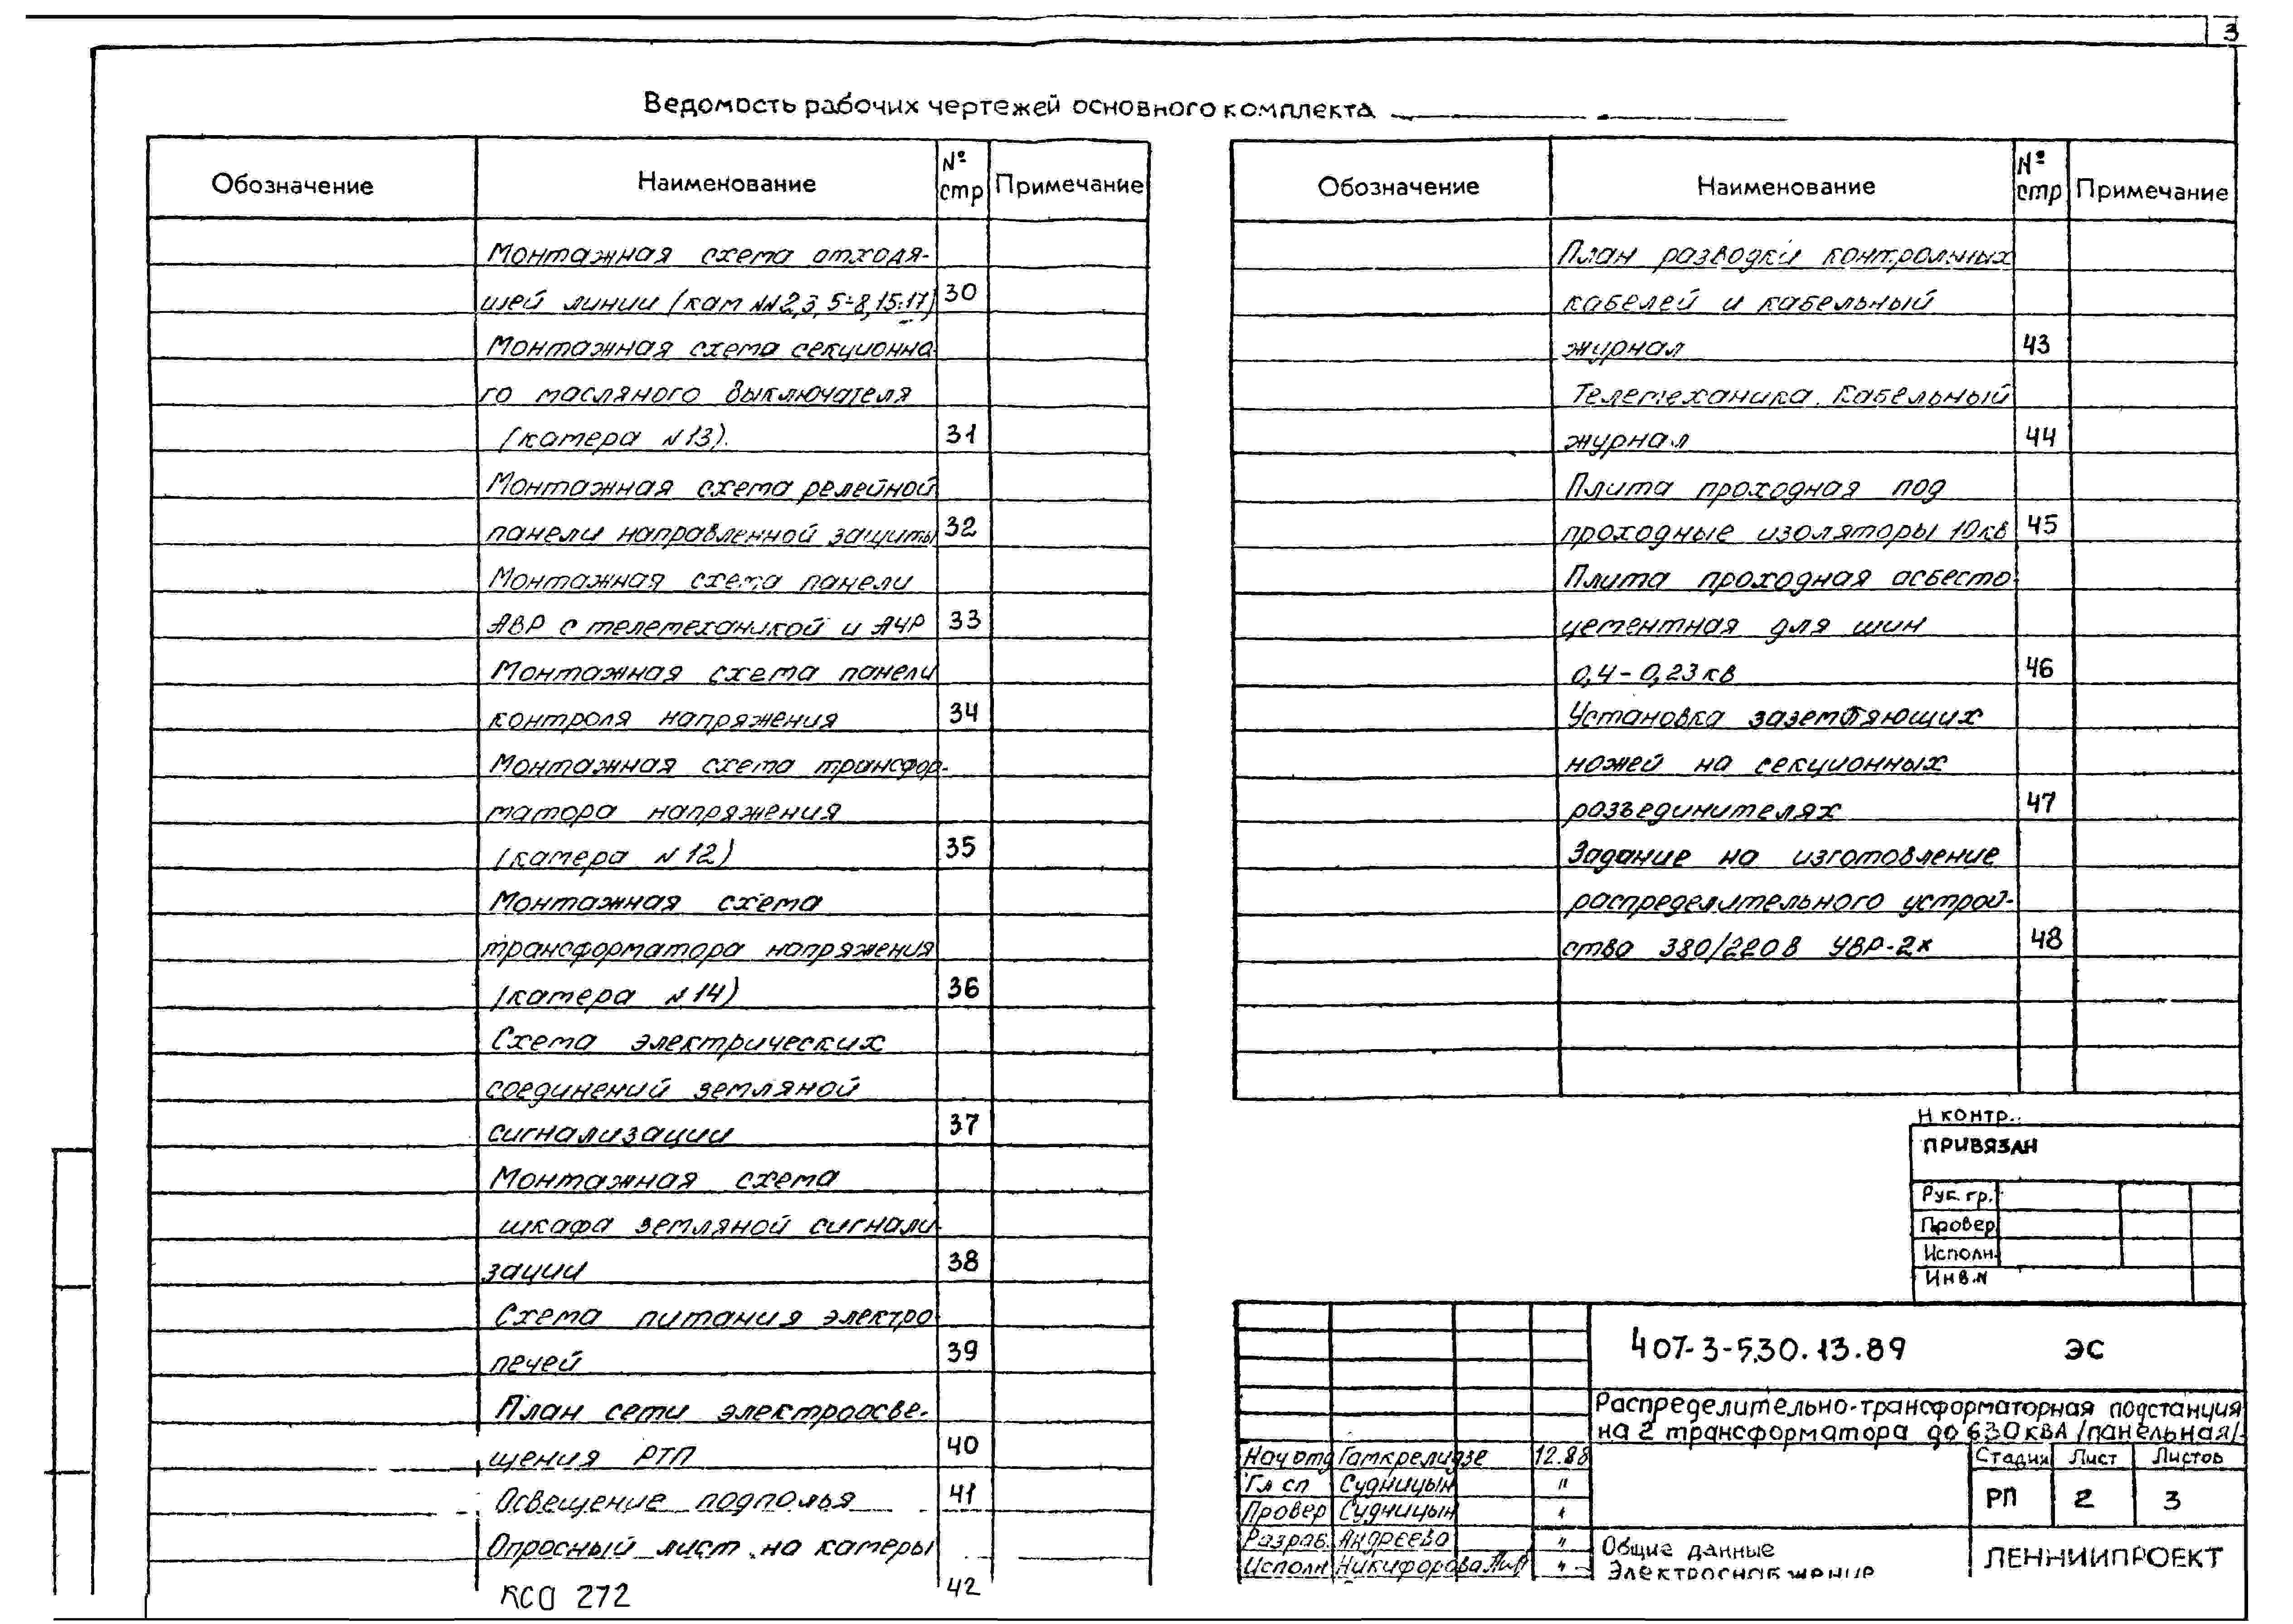 3
Ведомость рабочих чертежей основного комплекта
Обозначение Наименование № стр Примечание
Монтажная схема отходя-
щей линии (кам NN2,3, 5÷8, 15÷17) 30
Монтажная схема секционно
го масляного выключателя
(камера N13). 31
Монтажная схема релейной
панели направленной защиты 32
Монтажная схема панели
АВР с телемеханикой и АЧР 33
Монтажная схема панели
контроля напряжения 34
Монтажная схема трансфор-
матора напряжения
(камера N12) 35
Монтажная схема
трансформатора напряжения
(камера N14) 36
Схема электрических
соединений земляной
сигнализации 37
Монтажная схема
шкафа земляной сигнали-
зации 38
Схема питания электро-
печей 39
План сети электроосве-
щения РТП 40
Освещение подполья 41
Опросный лист на камеры
КСО 272 42
Обозначение Наименование № стр Примечание
План разводки контрольных
кабелей и кабельный
журнал 43
Телемеханика. Кабельный
журнал 44
Плита проходная под
проходные изоляторы 10кв 45
Плита проходная асбесто-
цементная для шин
0,4-0,23кв 46
Установка заземляющих
ножей на секционных
разъединителях 47
Задание на изготовление
распределительного устрой-
ства 380/220в УВР-2к 48
Н контр.
Привязан
Рук. гр.
Провер
Исполн.
Инв.N
407-3-530.13.89 ЭС
Распределительно-трансформаторная подстанция
на 2 трансформатора до 630кВА /панельная/
Нач отд Гамкрелидзе 12.88
Гл сп Судницын "
Провер Судницын "
Разраб. Андреева "
Исполн Никифорова "
Стадия Лист Листов
РП 2 3
Общие данные
Электроснабжение
ЛЕННИИПРОЕКТ